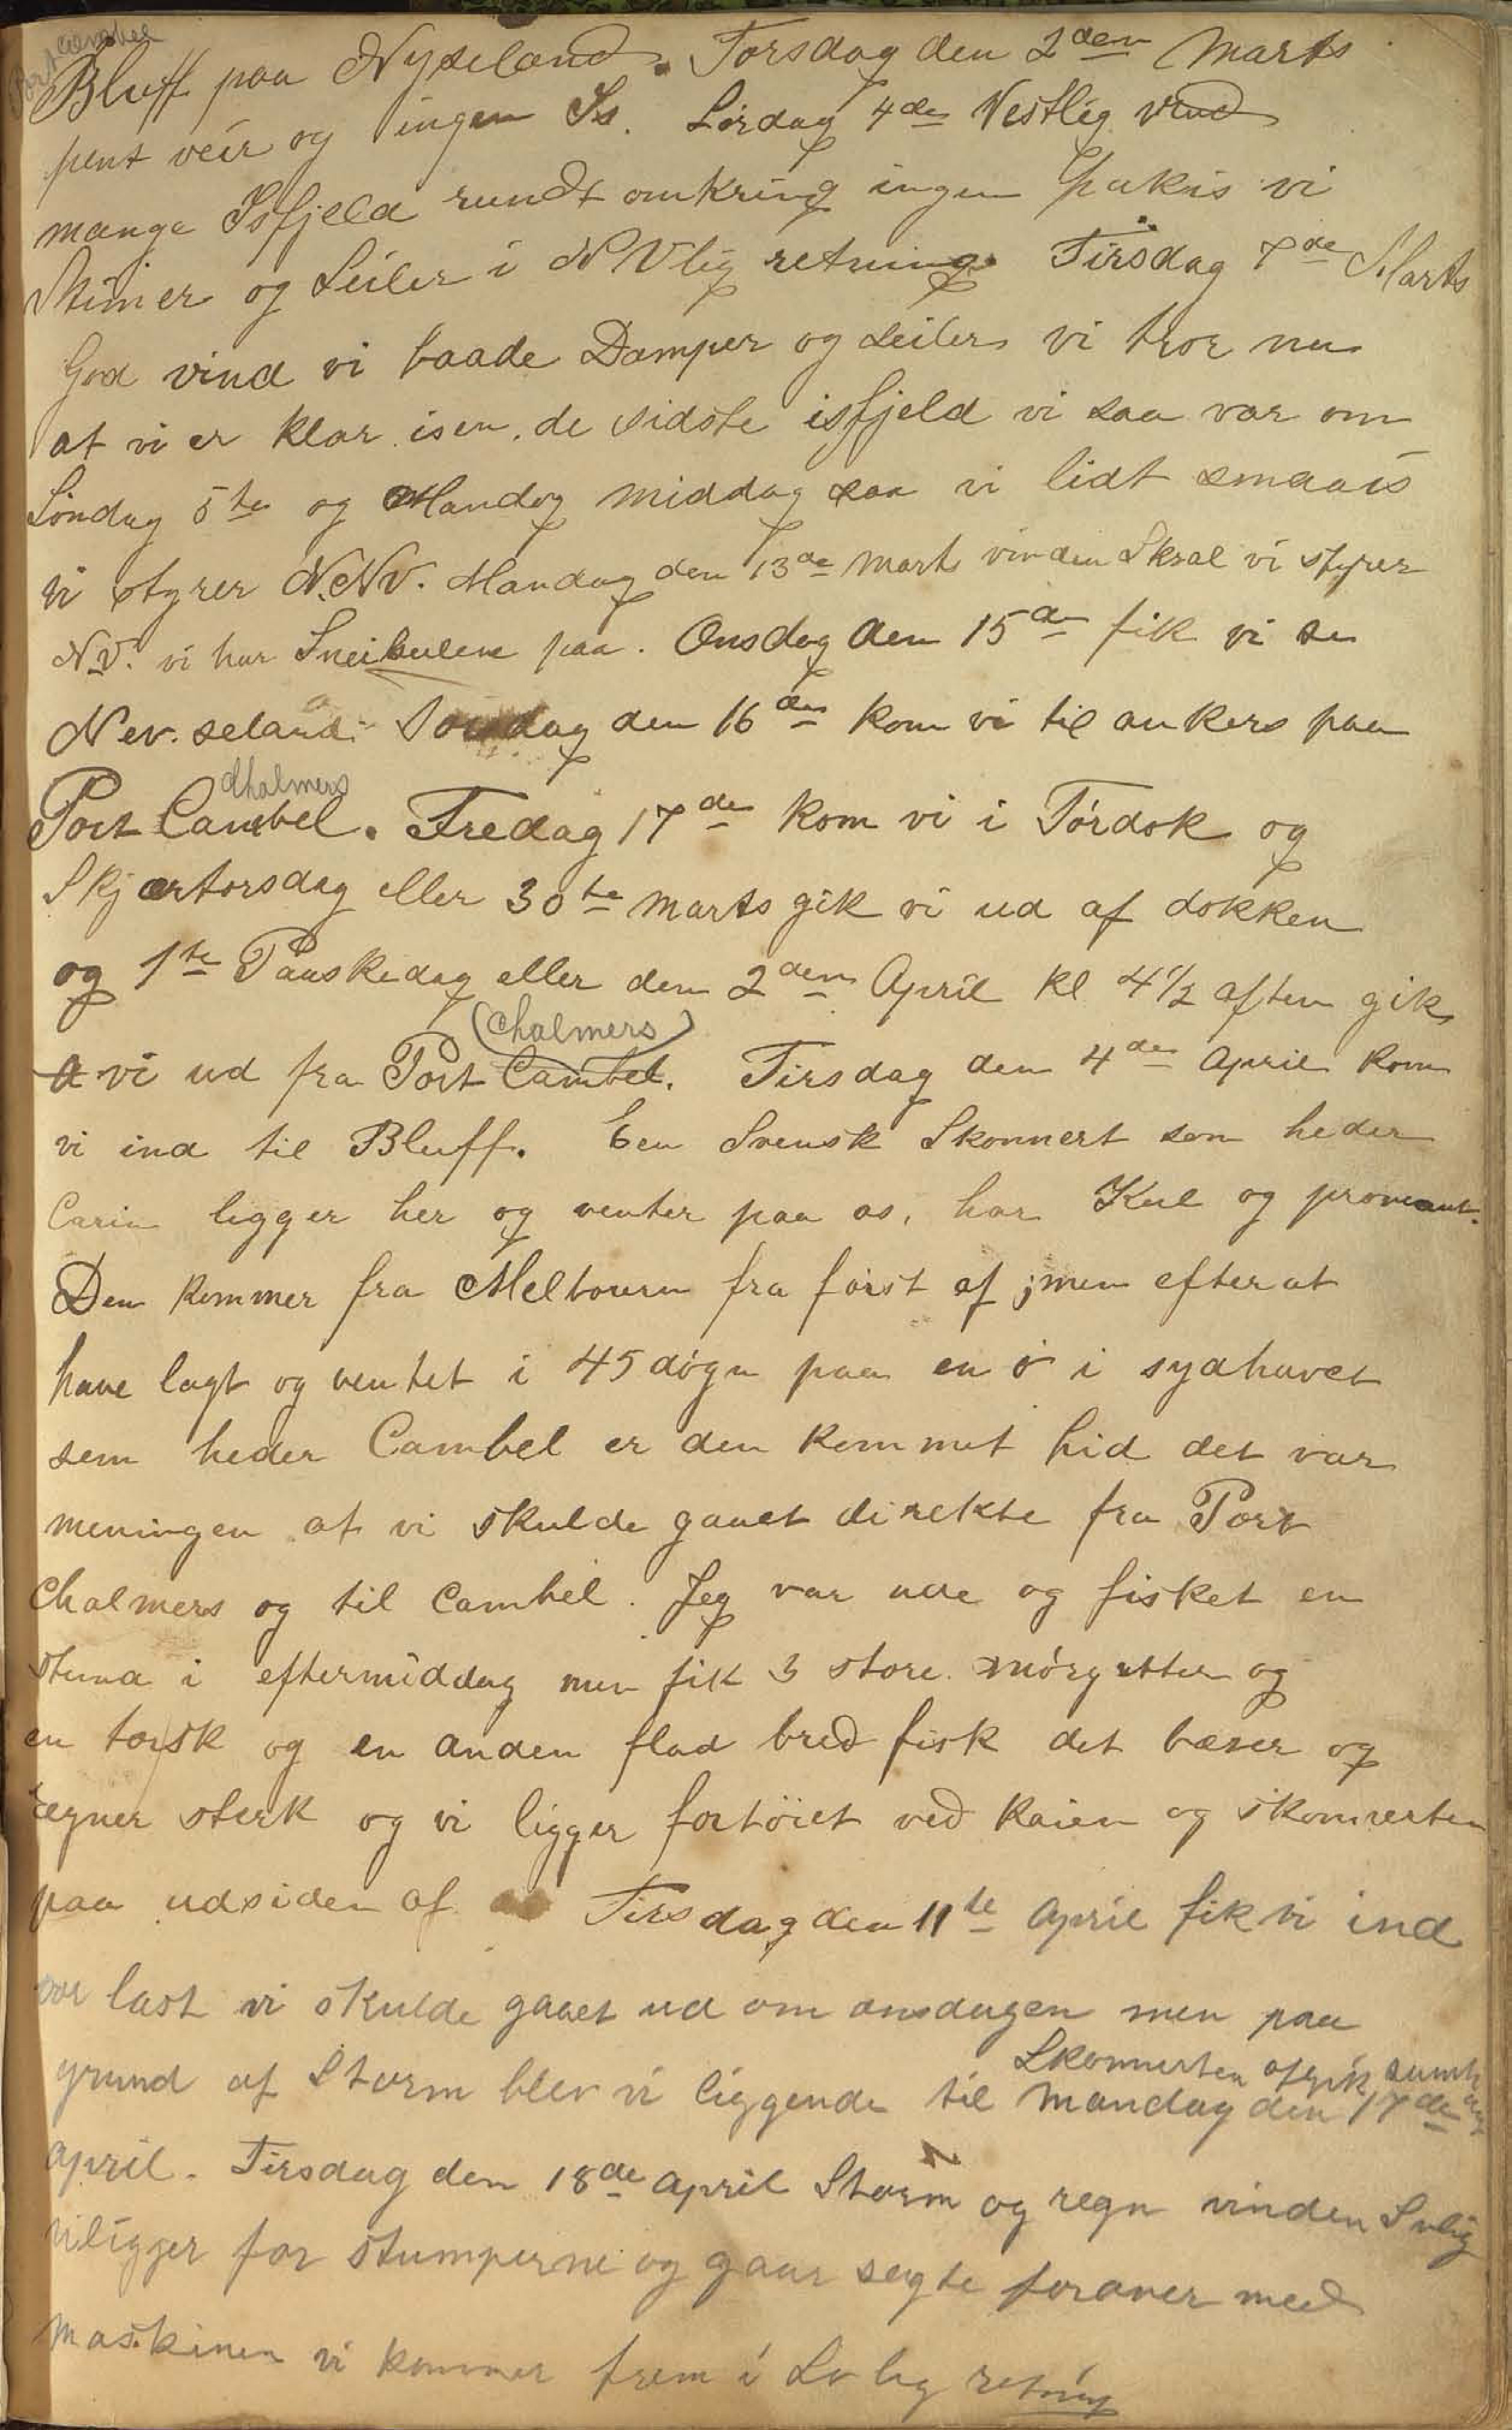 Port Cambel
Bluff paa Nyseland. Torsdag den 2den Marts
pent veir og ingen Is. Lørdag 4de Vestlig vind
mange Isfjeld rundt omkring ingen pakis vi
Stimer og Seiler i NVlig retning. Tirsdag 7de Marts
God vind vi baade Damper og seiler vi tror nu
at vi er klar isen. de sidste isfjeld vi saa var om
Søndag 5te og Mandag middag saa vi lidt smaais
vi styrer N.NV. Mandag den 13de Marts vinden Skral vi styrer
N.V. vi har Sneibylene paa. Onsdag den 15de fik vi se
Nev. seland. Torsdag den 16de kom vi til ankers paa
chalmers
Port Cambel. Fredag 17de kom vi i Tórdok og
Skjærtorsdag eller 30te marts gik vi ud af dokken
og 1te Paaskedag eller den 2den April kl 4 1/2 aften gik
(chalmers)
vi ud fra Port Cambel. Tirsdag den 4de April kom
vi ind til Bluff. Een Svensk Skonnert som heder
Carin ligger her og venter paa os, har Kul og proviant.
Den kommer fra Melbourn fra først af; men efter at
have lagt og ventet i 45 døgn paa en ø i sydhavet
som heder Cambel er den kommet hid det var
meningen at vi skulde gaaet direkte fra Port
Chalmers og til Cambel. Jeg var ude og fisket en
stund i eftermiddag men fik 3 store mórgatter og
en torsk og en anden flad bred fisk det blæser og
regner sterk og vi ligger fortøiet ved kaien og skonnerten
paa udsiden af Tirsdag den 11te April fik vi ind
vor last vi skulde gaaet ud om onsdagen men paa
Skonnerten afgik samt
grund af Storm blev vi liggende til Mandag den 17de
April. Tirsdag den 18de April Storm og regn vinden Svlig
vi ligger for stumperne og gaar sagte foraver med
maskinen vi kommer frem i Sv lig retning